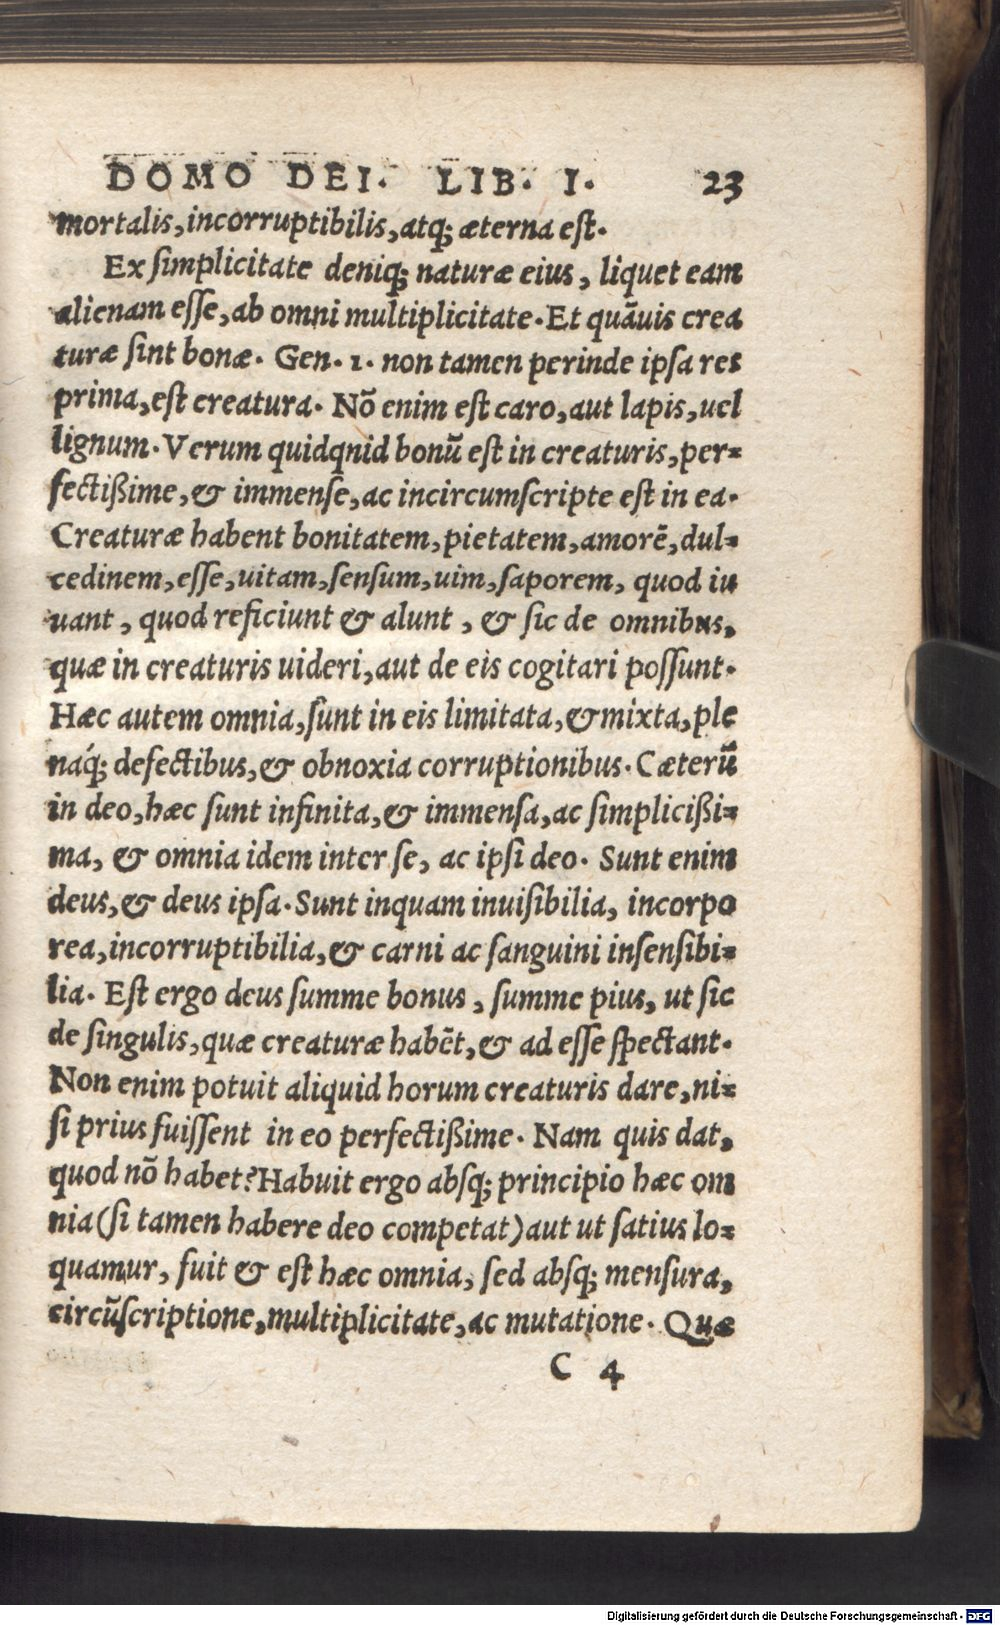 DOMO DEI. LIB. I. 23
mortalis, incorruptibilis, atq; æterna est.
Ex simplicitate deniq; naturæ eius, liquet eam
alienam esse, ab omni multiplicitate. Et quãuis crea
turæ sint bonæ. Gen. 1. non tamen perinde ipsa res
prima, est creatura. Nõ enim est caro, aut lapis, uel
lignum. Verum quidqnid bonũ est in creaturis, per=
fectißime, & immense, ac incircumscripte est in ea.
Creaturæ habent bonitatem, pietatem, amorẽ, dul=
cedinem, esse, uitam, sensum, uim, saporem, quod iu
uant, quod reficiunt & alunt, & sic de omnibus,
quæ in creaturis uideri, aut de eis cogitari possunt.
Hæc autem omnia, sunt in eis limitata, & mixta, ple
náq; defectibus, & obnoxia corruptionibus. Cæterũ
in deo, hæc sunt infinita, & immensa, ac simplicißi=
ma, & omnia idem inter se, ac ipsi deo. Sunt enim
deus, & deus ipsa. Sunt inquam inuisibilia, incorpo
rea, incorruptibilia, & carni ac sanguini insensibi=
lia. Est ergo deus summe bonus, summe pius, ut sic
de singulis, quæ creaturæ habẽt, & ad esse spectant.
Non enim potuit aliquid horum creaturis dare, ni=
si prius fuissent in eo perfectißime. Nam quis dat,
quod nõ habet? Habuit ergo absq; principio hæc om
nia (si tamen habere deo competat) aut ut satius lo=
quamur, fuit & est hæc omnia, sed absq; mensura,
circũscriptione, multiplicitate, ac mutatione. Quæ
C 4
Digitalisierung gefördert durch die Deutsche Forschungsgemeinschaft - DFG